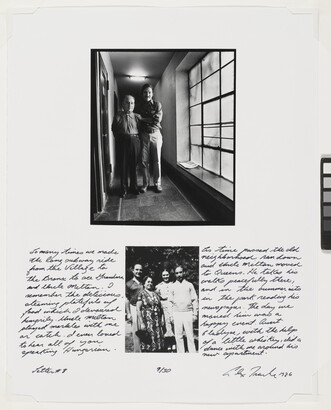 So many times we made
the long subway ride
from the Village to
the Bronx to see Grandma
and Uncle Melton. I
remember the delicious,
steaming platefuls of
food which I devoured
happily. Uncle Melton
played marbles with me
or catch. I even loved
to hear all of you
speaking Hungarian.
As time passed the old
neighborhood ran down
and Uncle Melton moved
to Queens. He takes his
walks peacefully there,
and in the summer sits
in the park reading his
newspaper. The day we
married him was a
happy event. Aunt
with the help
of a little whiskey, did a
dance with me around his
new apartment.
Letter #8
9/50
1986